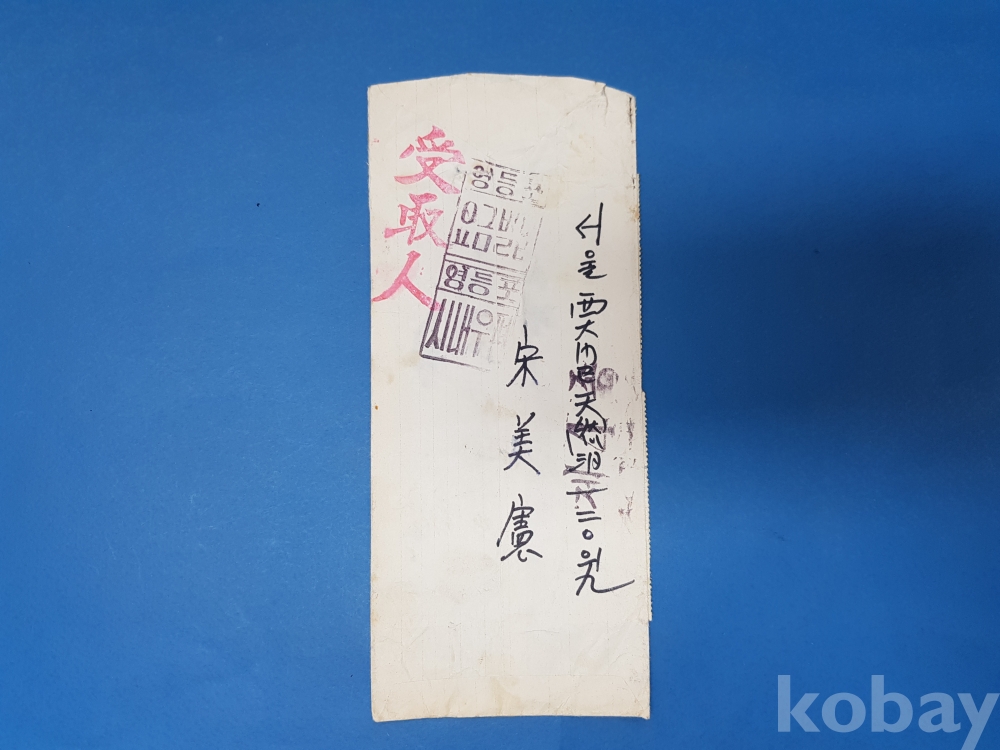 受取人
영등포
요금별
영등포
시내우
서울 西大門 天然洞
宋美憲
kobay